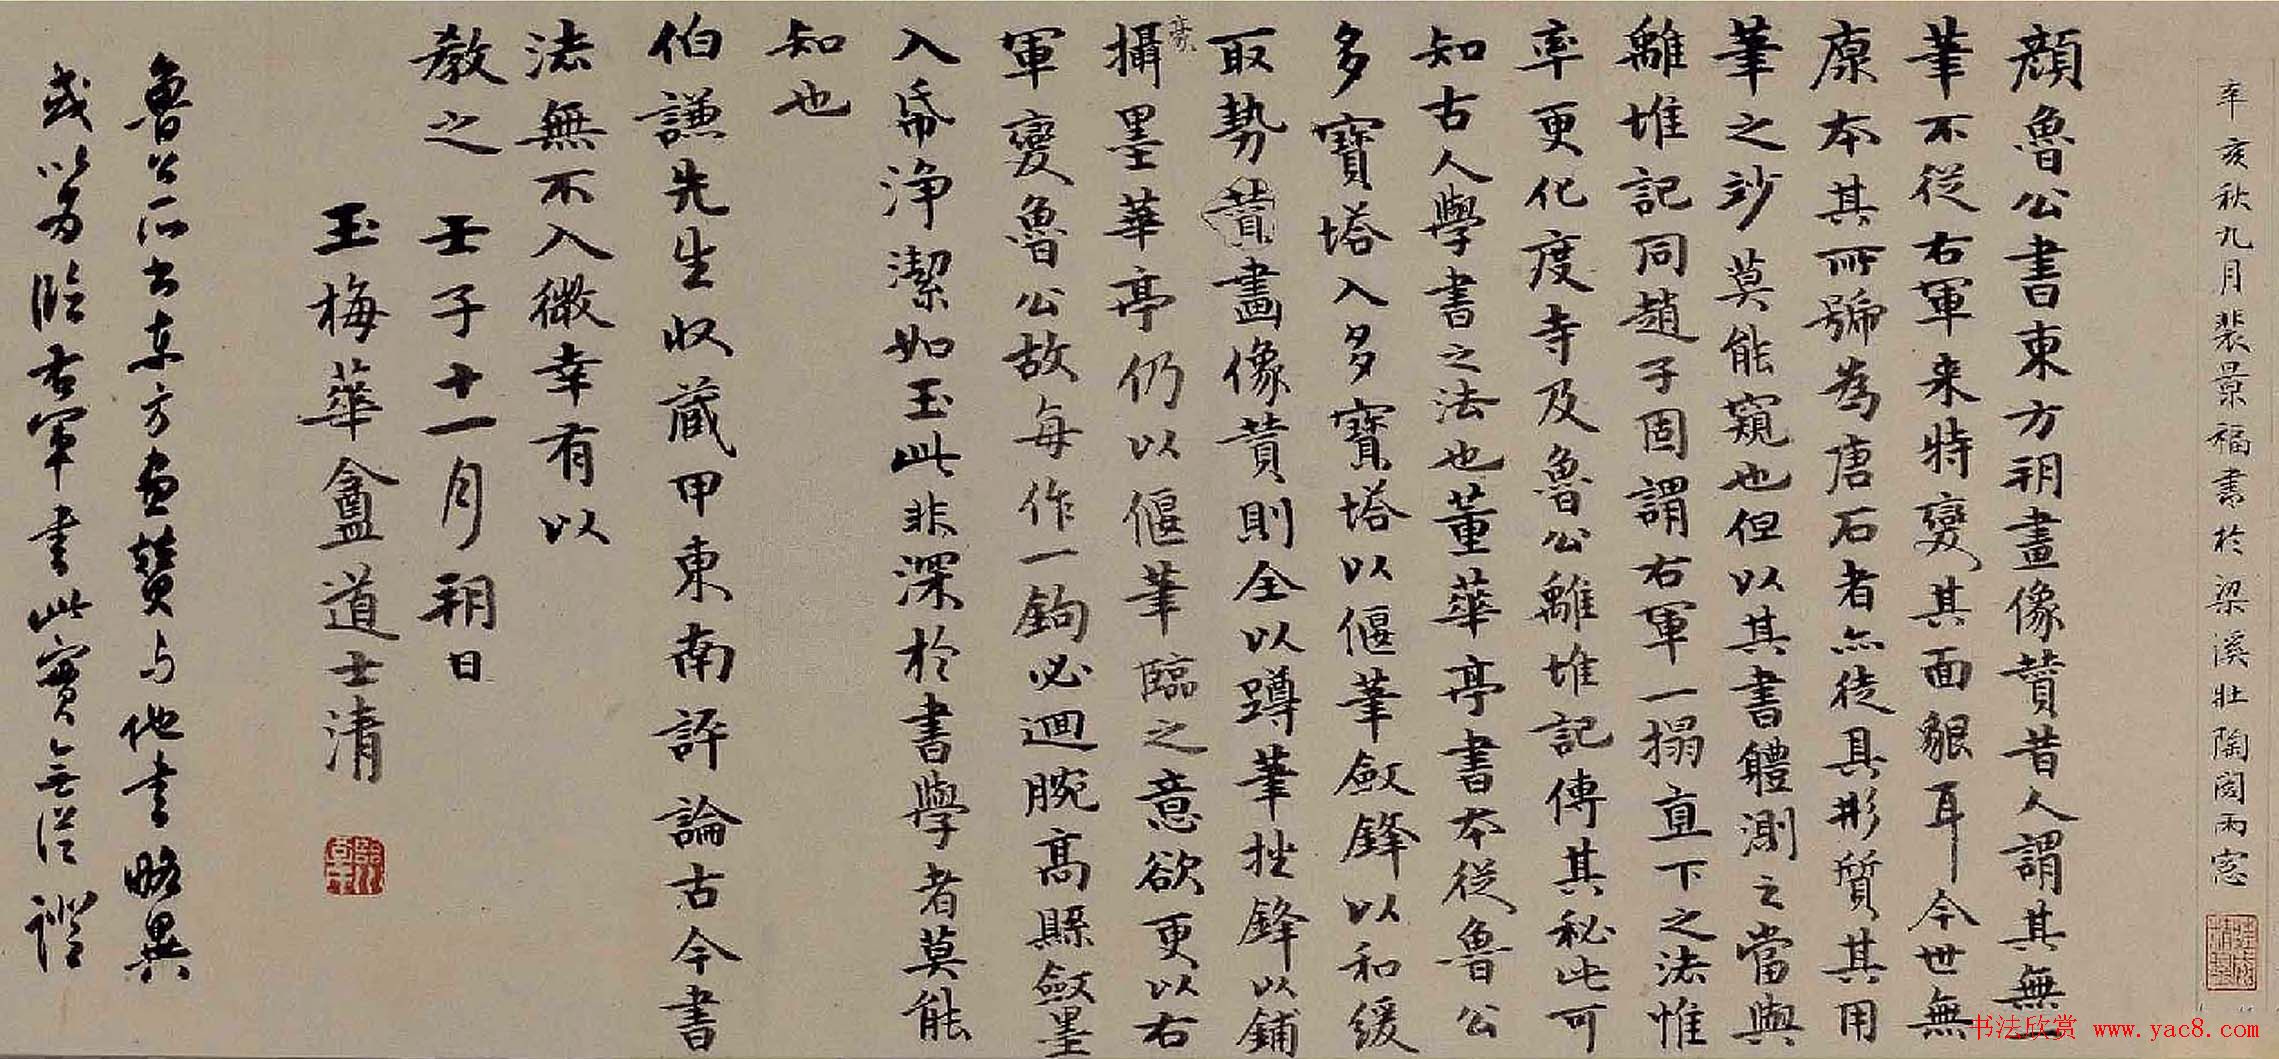 辛亥秋九月裴景福書於梁溪壯陶閣雨窓
顔魯公書東方朔畫像贊昔人謂其無一
筆不從右軍来特變其面貌耳今世無
原本其所號為唐石者亦徒具形質其用
筆之妙莫能窺也但以其書體測之當與
離堆記同趙子固謂右軍一搨直下之法惟
率更化度寺及魯公離堆記傳其秘此可
知古人學書之法也董華亭書本從魯公
多寶塔入多寶塔以偃筆斂鋒以和緩
取勢贊畫像贊則全以蹲筆挫鋒以鋪
豪
攝墨華亭仍以偃筆臨之意欲更以右
軍變魯公故每作一鉤必迴腕高縣斂墨
入帋浄潔如玉此非深於書學者莫能
知也
伯謙先生収蔵甲東南評論古今書
法無不入微幸有以
教之 壬子十一月朔日
玉梅華盦道士清
魯公所書東方畫贊与他書略異
或以為臨右軍書此實無從證
书法欣赏 www.yac8.com